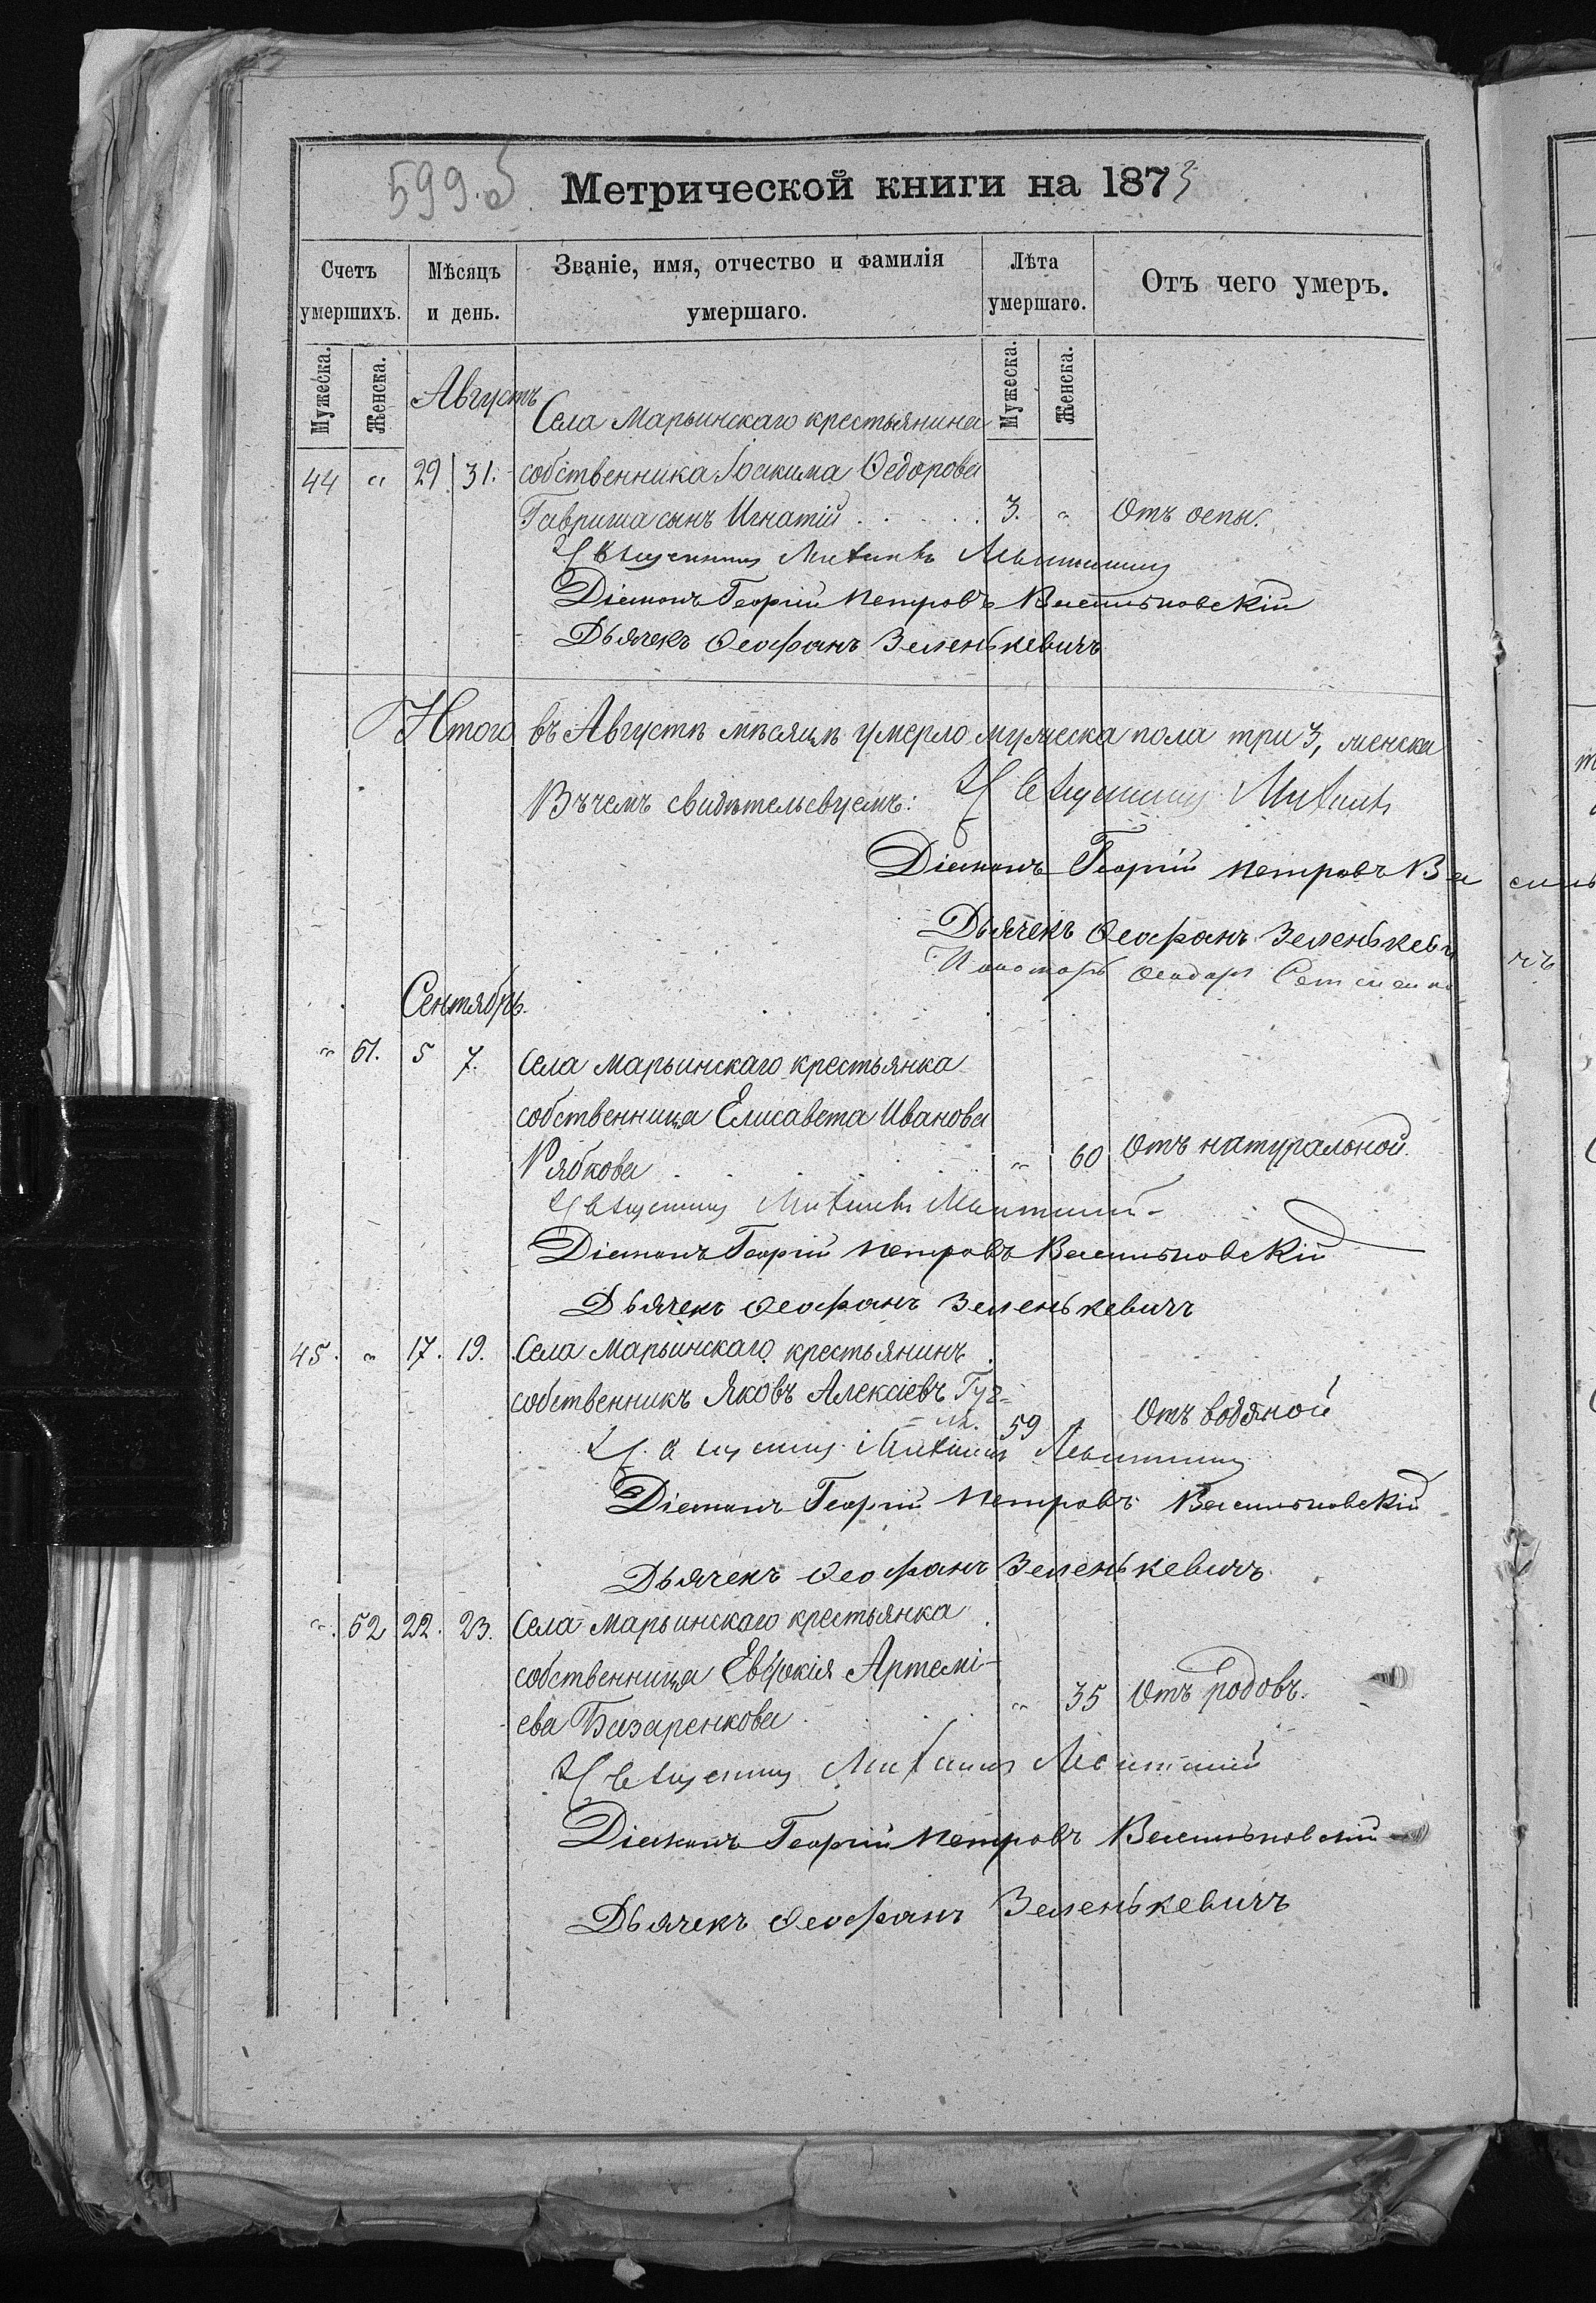 599.б
Метрической книги на 1873
Счетъ умершихъ.
Мѣсяцъ и день.
Званіе, имя, отчество и фамилія умершаго.
Лѣта умершаго.
Отъ чего умеръ.
Мужеска.
Женска.
Мужеска.
Женска.
Августъ
Села Марьинскаго крестьянина
44 " 29 31. собственника Іоакима Ѳедорова
Гавриша сынъ Игнатій 3. " Отъ оспы.
Священникъ Михаилъ
Діаконъ Георгій Петровъ Васильковскій
Дьячекъ Ѳеофанъ Зеленькевичъ
Итого въ Августѣ мѣсяцѣ умерло мужеска пола три 3, женска
Въ чемъ свидѣтельсвуемъ: Священникъ Михаилъ
Діаконъ Георгій Петровъ Василь
Дьячекъ Ѳеофанъ Зеленькевичъ
Пономарь Ѳеодоръ
Сентябрь.
" 51. 5 7. Села Марьинскаго крестьянка
собственница Елисавета Иванова
Рябкова " 60 Отъ натуральной.
Священникъ Михаилъ
Діаконъ Георгій Петровъ Васильковскій
Дьячекъ Ѳеофанъ Зеленькевичъ
45. " 17. 19. Села Марьинскаго крестьянинъ
собственникъ Яковъ Алексѣевъ
59 Отъ водяной
Священникъ Михаилъ
Діаконъ Георгій Петровъ Васильковскій
Дьячекъ Ѳеофанъ Зеленькевичъ
" 52 22. 23. Села Марьинскаго крестьянка
собственница Евдокія Артемі-
ева Базаренкова " 35 Отъ родовъ.
Священникъ Михаилъ
Діаконъ Георгій Петровъ Васильковскій
Дьячекъ Ѳеофанъ Зеленькевичъ